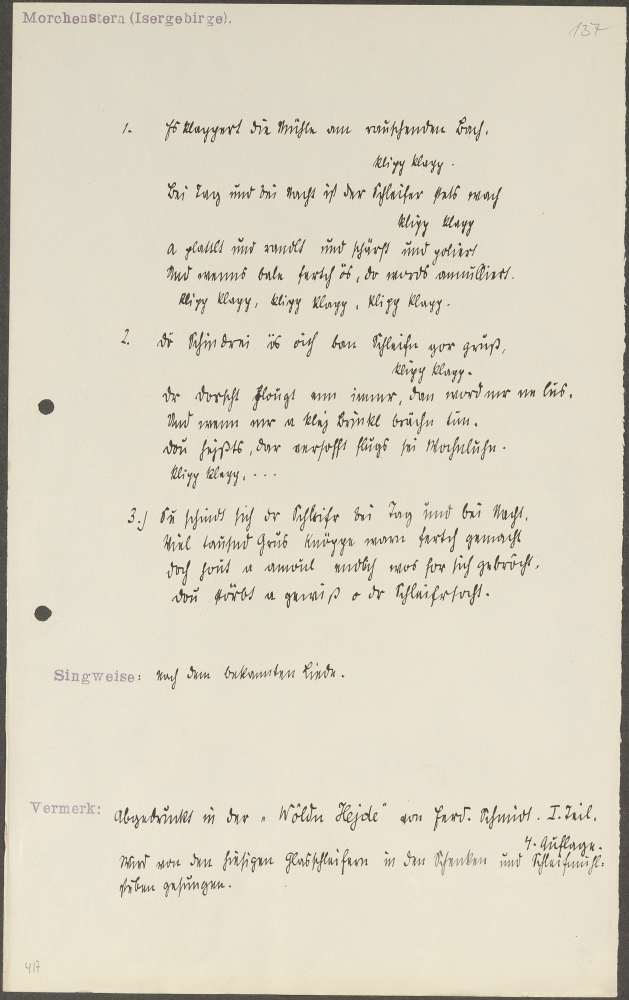 Morchenstern (Isergebirge).
137
1. Es klappert die Mühle am rauschenden Bach,
klipp klapp.
Bei Tag und bei Nacht ist der Schleifer stets wach
klipp klapp
a plattlt und randlt und schärft und poliert
Und wenns bale fertch ös, do words
klipp klapp, klipp klapp, klipp klapp.
2. Dö Schindrei ös öch ban Schleifn gor gruß,
klipp klapp.
Dr Dorscht plougt enn immr, dan word mr ne lus.
Und wenn mr a klej brinkl brächn tun.
dou hejßts, dar versofft flugs sei Wochnluhn.
klipp klapp, . . .
3.) Su schindt sich dr Schleifr bei Tag und bei Nacht,
Viel tausnd Grus Knöppe warn fertch gemacht
doch hout a amoul endlich wos for sich gebröcht,
dou störbt a gewiß o dr Schleifrsocht.
Singweise: nach dem bekannten Liede.
Vermerk: Abgedruckt in der "Wöldn Hejde" von Ferd. Schmidt. I. Teil.
4. Auflage.
Wird von den hiesigen Glasschleifern in den Schenken und Schleifmühl=
stuben gesungen.
417